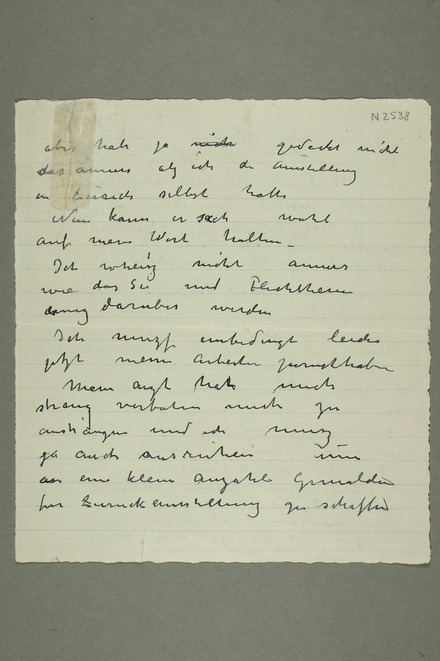 N2538
aber hab ja nich gedacht nicht
das anners als ich die Austellung
in Zürich selbst hatte
Nun kann er sich wohl
auf mein Wort halten –
Ich weheisz nicht anners
wie das Sie und Flechtheim
einig darüber werden
Ich muszs unbedingt leider
jetzt meine Arbeiten zurückhaben
Mein Arzt hat mich
streng verboten mich zu
anstrengen und ich musz
ja auch ausruhen um
an eine klein Anzahl Gemälden
für Zurückeinstellung zu schaffen